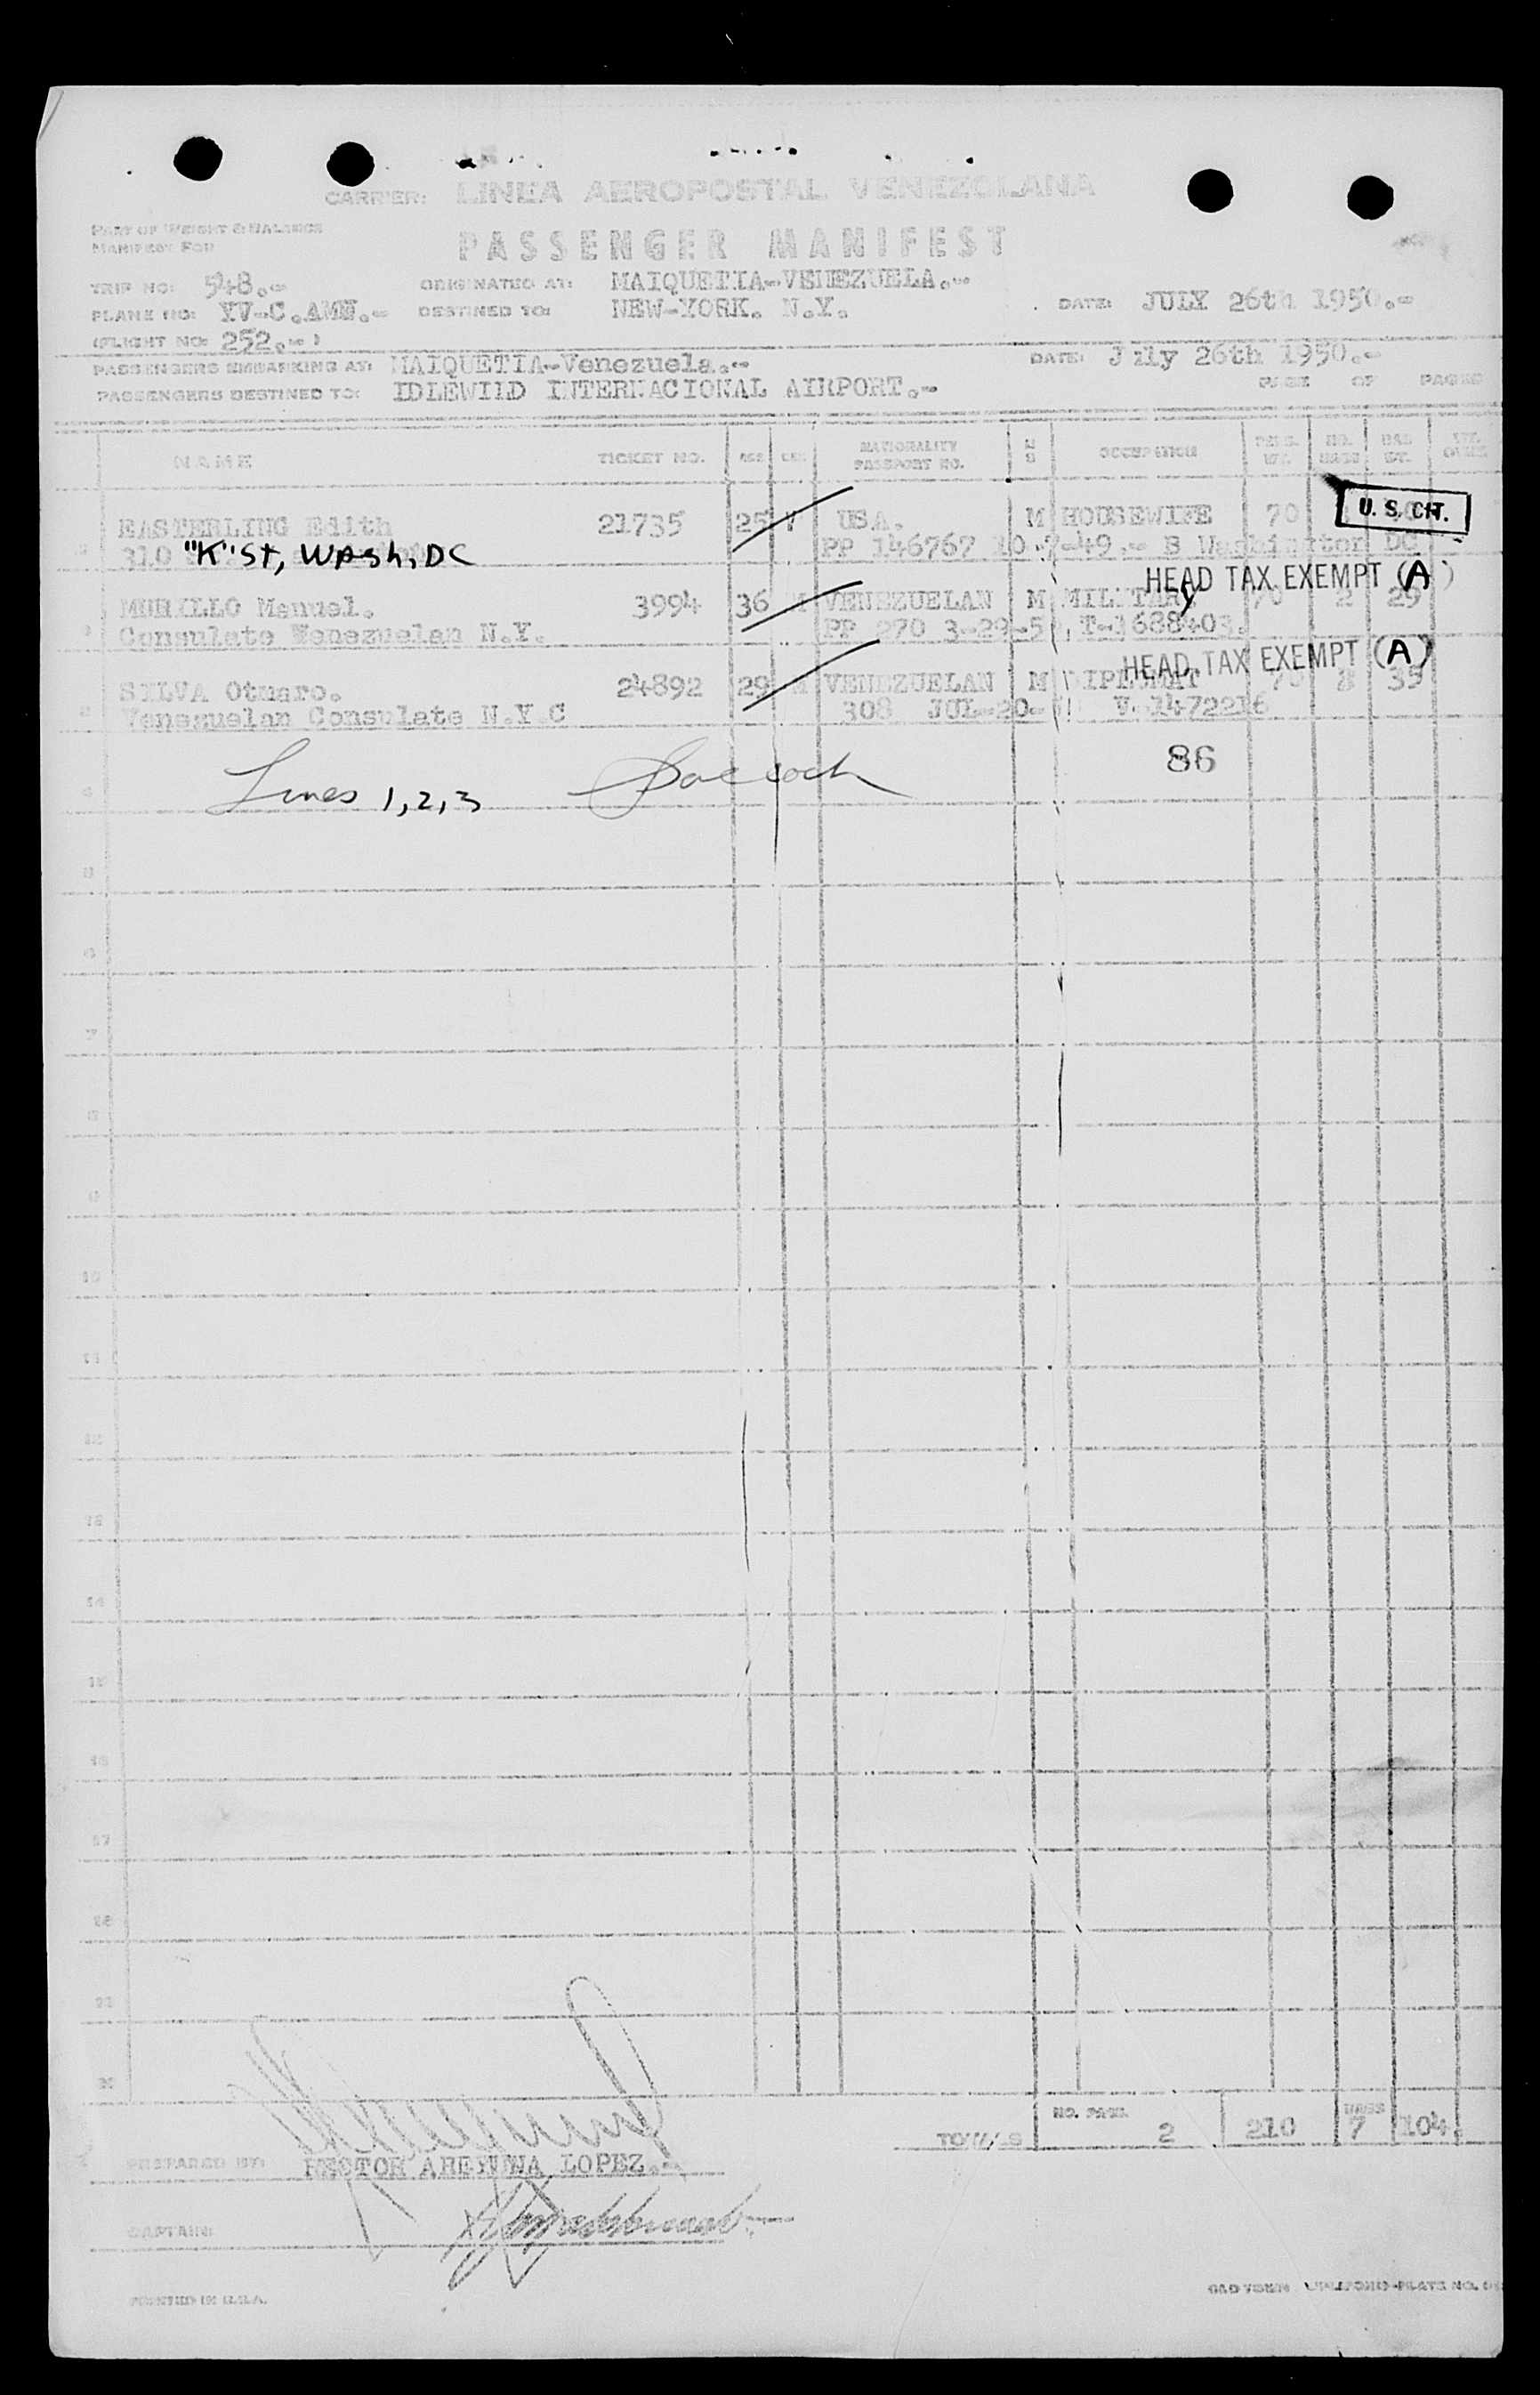 CARRIER: LINEA AEROPOSTAL VENEZOLANA
PART OF WEIGHT & BALANCE
MANIFEST FOR
PASSENGER MANIFEST
TRIP NO: 548.- ORIGINATED AT: MAIQUETIA-VENEZUELA.- DATE: JULY 26th 1950.-
PLANE NO: YV-C.AME.- DESTINED TO: NEW-YORK. N.Y.
(FLIGHT NO: 252.-)
PASSENGERS EMBARKING AT: MAIQUETIA-Venezuela.- DATE: July 26th 1950.-
PASSENGERS DESTINED TO: IDLEWILD INTERNACIONAL AIRPORT.- PAGE OF PAGES
NAME TICKET NO. AGE SEX NATIONALITY PASSPORT NO. M S OCCUPATION PASS. WT. NO. BAGS BAG WT.
EASTERLING Edith 21735 25 F USA. M HOUSEWIFE 70 U. S. CIT.
310 "K" St, Wash, DC PP 146767 10-7-49.- B Washington DC
HEAD TAX EXEMPT (A)
MURILLO Manuel. 3994 36 M VENEZUELAN M MILITARY 70 2 29
Consulate Venezuelan N.Y. PP 270 3-29-5 T-1688403.
HEAD TAX EXEMPT (A)
SILVA Otmaro. 24892 29 M VENEZUELAN M DIPLOMAT 70 35
Venezuelan Consulate N.Y.C 308 JUL-20- V. 1472216
86
Lines 1, 2, 3
4
5
6
7
8
9
10
11
12
13
14
15
16
17
18
19
20
TOTALS NO. PASS. 2 210 BAGS 7 104.
PREPARED BY: HECTOR LOPEZ.-
CAPTAIN:
PRINTED IN U.S.A.